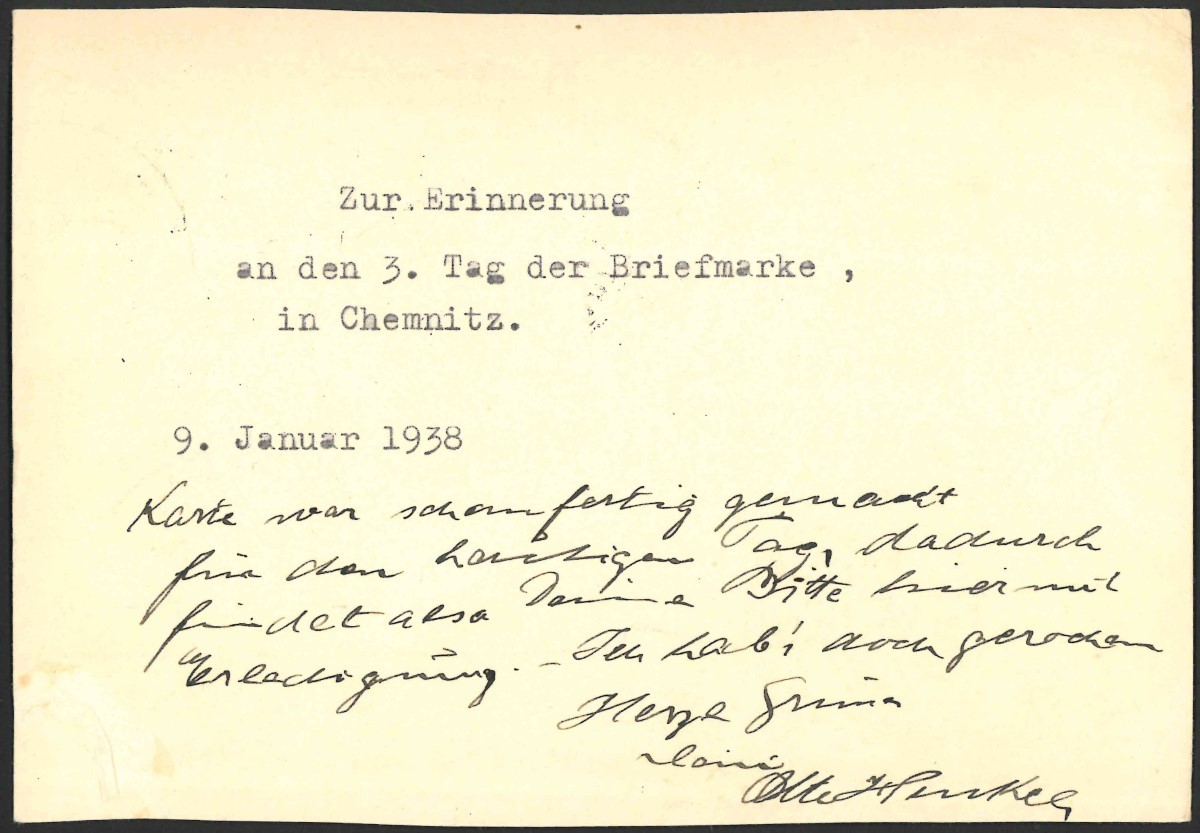 Zur Erinnerung
an den 3. Tag der Briefmarke ,
in Chemnitz.
9. Januar 1938
Karte war schon fertig gemacht
für den heutigen Tag, dadurch
findet also Deine Bitte hiermit
Erledigung. – Ich hab's doch gerochen
Herzl Grüße
Dein
Otto Henkel